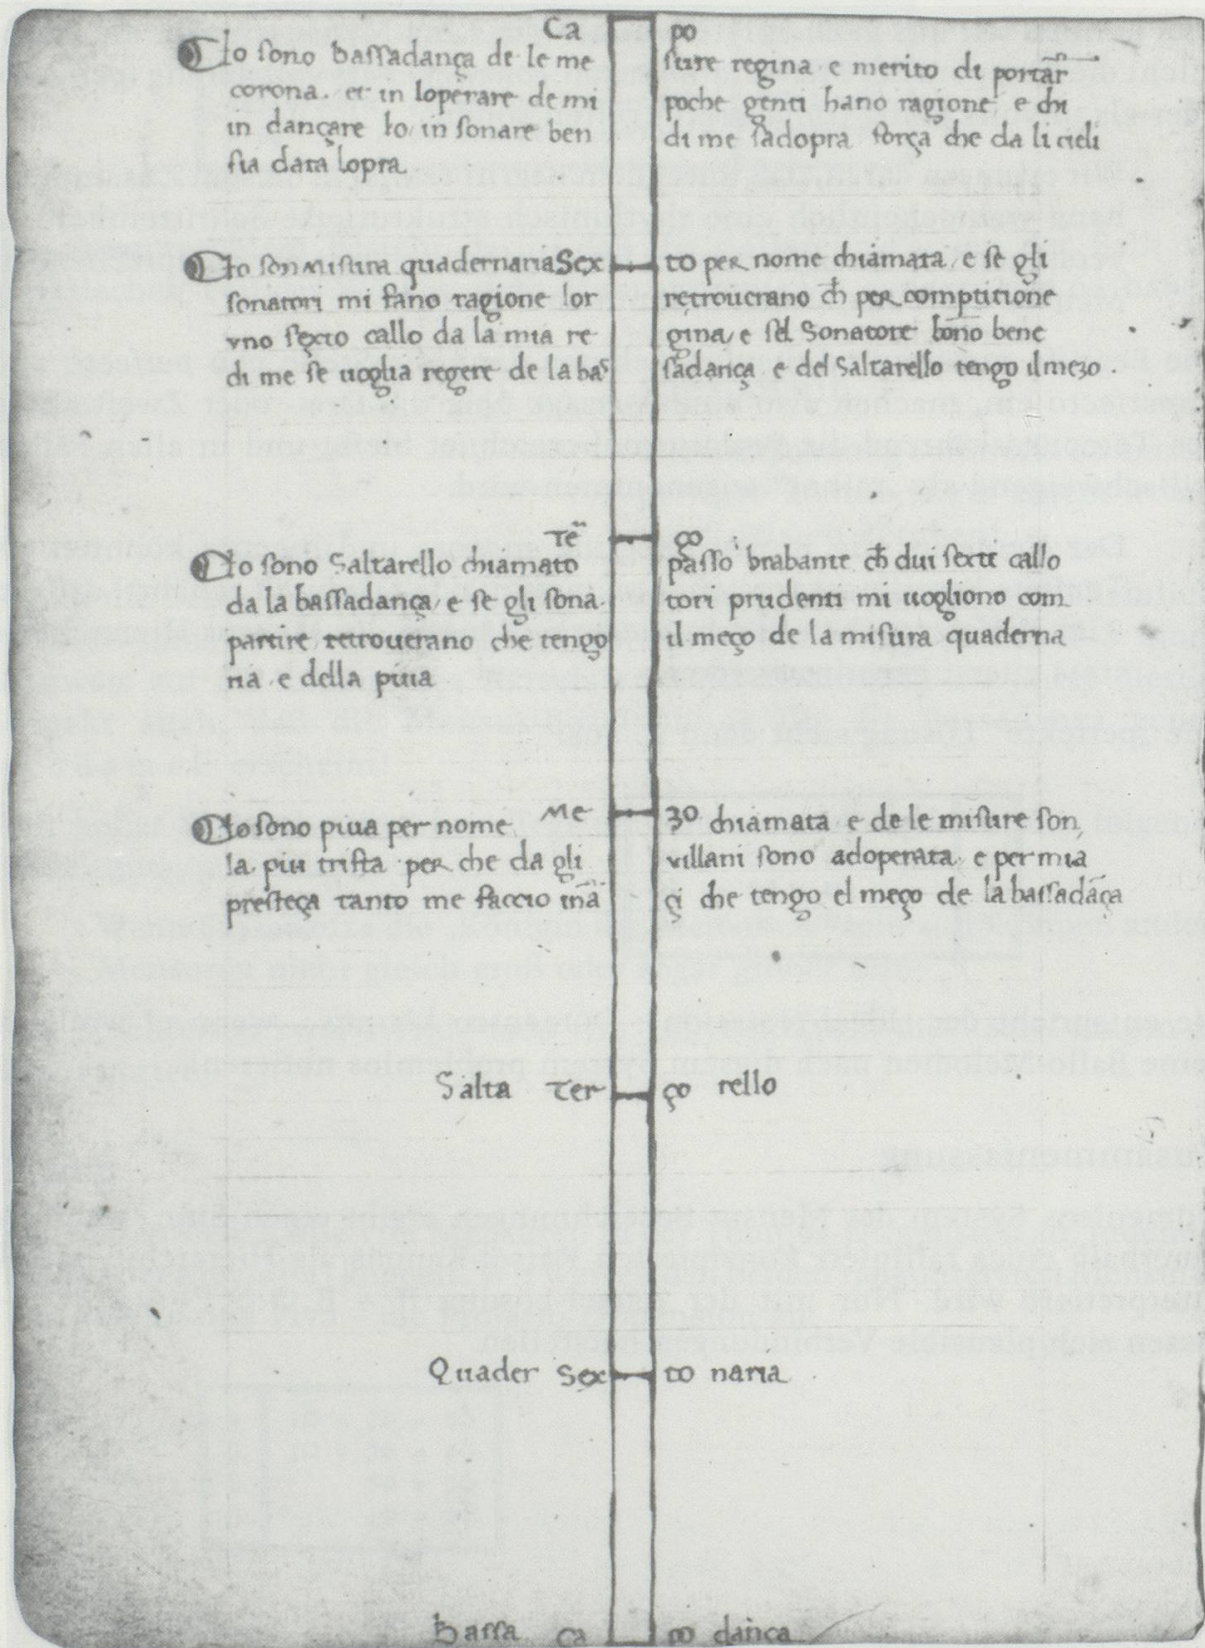 Ca po
Io sono bassadança de le me sure regina e merito di portar̄
corona. et in loperare de mi poche genti hano ragione e chi
in dançare Io in sonare ben di me sadopra força che da li cieli
sia data lopra
Io son misura quadernaria Sex to per nome chiamata e se gli
sonatori mi fano ragione lor retrouerano ch̄ per comptitione
vno sexto callo da la mia re gina e sel Sonatore bene
di me se uoglia regere de la bas sadança e del Saltarello tengo il mezo.
Te ço
Io sono Saltarello chiamato passo brabante ch̄ dui sexti callo
da la bassadança e se gli sona tori prudenti mi uogliono com
partire retrouerano che tengo il meço de la misura quaderna
ria e della piua
Me zo
Io sono piua per nome chiamata e de le misure son
la piu trista per che da gli villani sono adoperata e per mia
presteça tanto me faccio inā çi che tengo el meço de la bassadāça
Salta Ter ço rello
Quader Sex to naria
Bassa Ca po dança